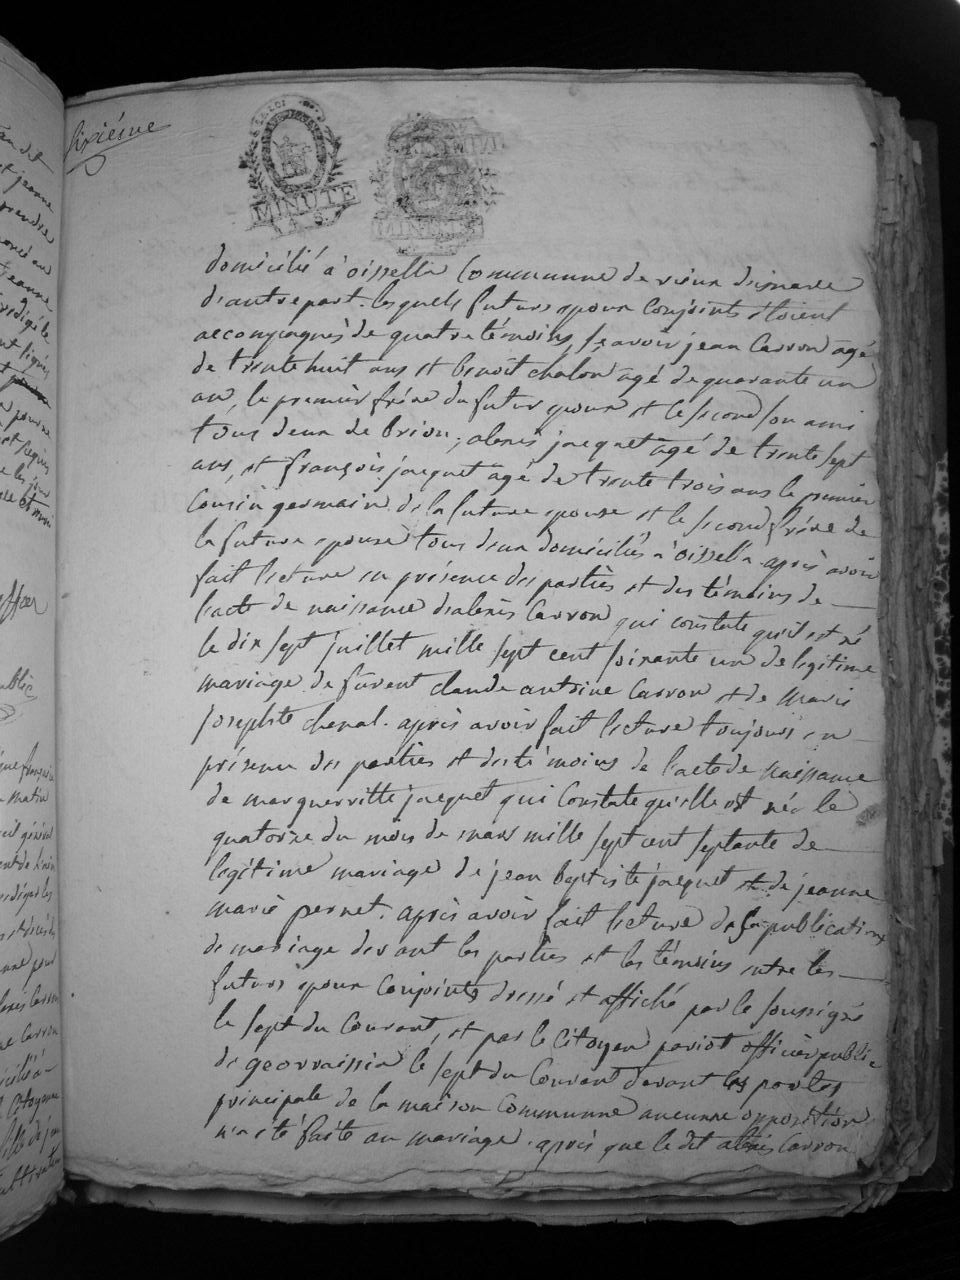 Sixiésme
LA LOI
MINUTE
MINUTE
domicilié à oissella Communne de vieux disnave
d'autre part. lesquels futurs epoux conjoints étoient
accompagnés de quatre témoins, sçavoir jean Carron agé
de trente huit ans et benoit chalon agé de quarante un
an, le premier frére du futur epoux et le second son ami
tous deux de brion, alexis jacquet agé de trente sept
ans, et françois jacquet agé de trente trois ans le premier
cousin germain de la future epouse et le second frére de
la future epouse tous deux domiciliés à oissella. après avoir
fait lecture en présence des parties et des témoins de
l'acte de naissance d'alexis Carron qui constate qu'il est né
le dix sept juillet mille sept cent soixante un de legitime
mariage de furent claude antoine Carron et de Marie
josephte chenal. après avoir fait lecture toujours en
présence des parties et des témoins de l'acte de naissance
de marguerritte jacquet qui Constate qu'elle est née le
quatorze du mois de mars mille sept cent septante de
legitime mariage de jean baptiste jacquet et de jeanne
marie pernet. après avoir fait lecture de la publication
de mariage devant les parties et les témoins entre les
futurs epoux Conjoints dressé et affiché par le soussigné
le sept du Courant, et par le Citoyen pariot officier public
de georraissia le sept du Courant devant les portes
principale de la maison Communne aucunne opposition
n'a été faite au mariage. après que le dit alexis Carron